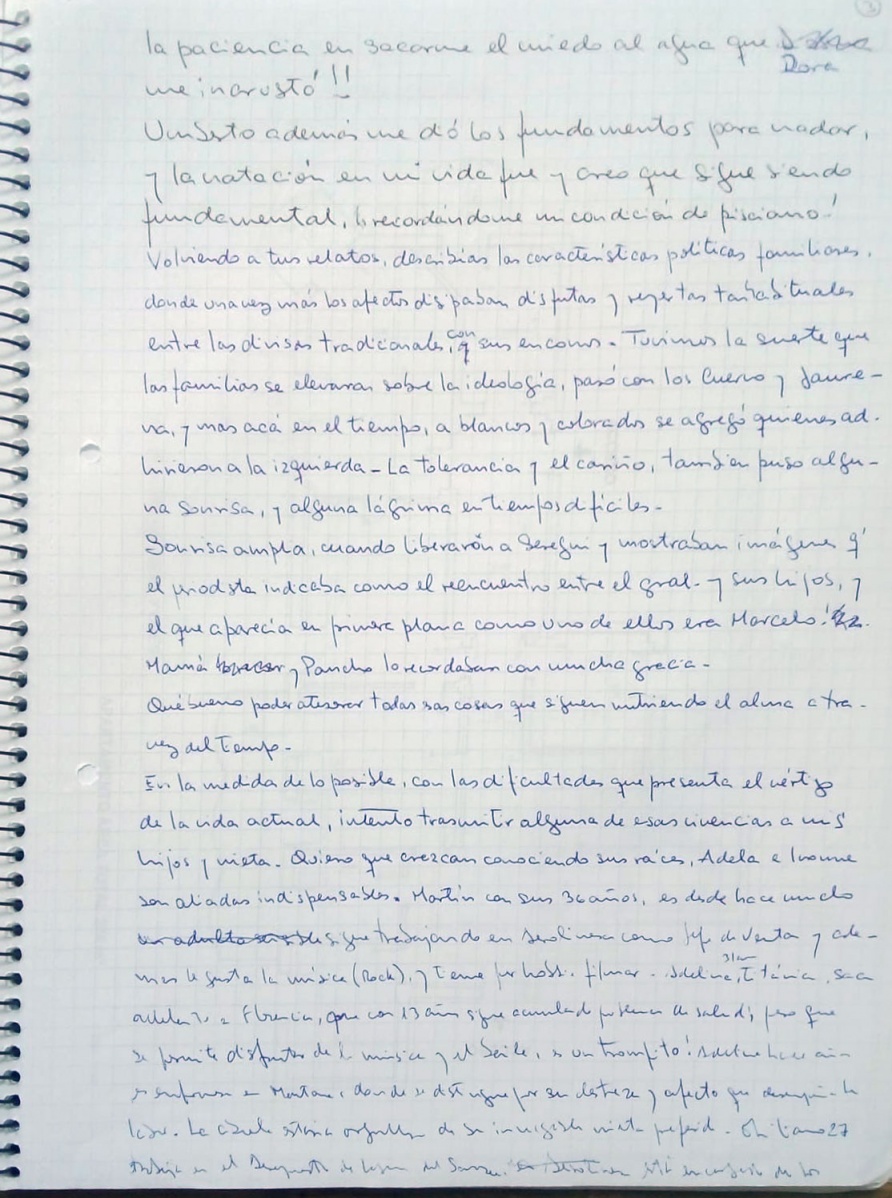 3
la paciencia en sacarme el miedo al agua que
Dora
me incrustó!!
Umberto además me dió los fundamentos para nadar,
y la natación en mi vida fue y creo que sigue siendo
fundamental, recordándome mi condición de pisciano!
Volviendo a tus relatos, describías las características políticas familiares,
donde una vez más los afectos disipaban disputas y reyertas tan habituales
entre las divisas tradicionales, con q' sus enconos. Tuvimos la suerte que
las familias se elevaran sobre la ideología, pasó con los Cuervo y Jaure-
na, y mas acá en el tiempo, a blancos y colorados se agregó quienes ad-
hirieron a la izquierda - La tolerancia y el cariño, tambien puso algu-
na sonrisa, y alguna lágrima en tiempos difíciles -
Sonrisa ampla, cuando liberarón a Seregni y mostraban imágenes q'
el prodsta indicaba como el reencuentro entre el gral. y sus hijos, y
el que aparecía en primer plana como uno de ellos era Marcelo!
Mamá y Pancho lo recordaban con mucha gracia -
Qué bueno poder atesorar todas esas cosas que siguen nutriendo el alma a tra-
vez del tiempo -
En la medida de lo posible, con las dificultades que presenta el vértigo
de la vida actual, intento trasmitir alguna de esas vivencias a mis
hijos y nieta. Quiero que crezcan conociendo sus raíces, Adela e Ivonne
son aliadas indispensables. Martín con sus 36 años, es desde hace mucho
sigue trabajando en como Jefe de Venta y ade-
mas le gusta la música (Rock), y tiene por hobbi filmar - Adelina, 31 Titánica, saca
adelante a Florencia, que con 13 años sigue acumulando problemas de salud, pero que
se permite disfrutar de la música y el baile, es un trompito! Adelina hace
es enfermera en donde se distingue por su destreza y afecto que
La abuela estaría orgullosa de su nieta - Emiliano 27
trabaja en el de los